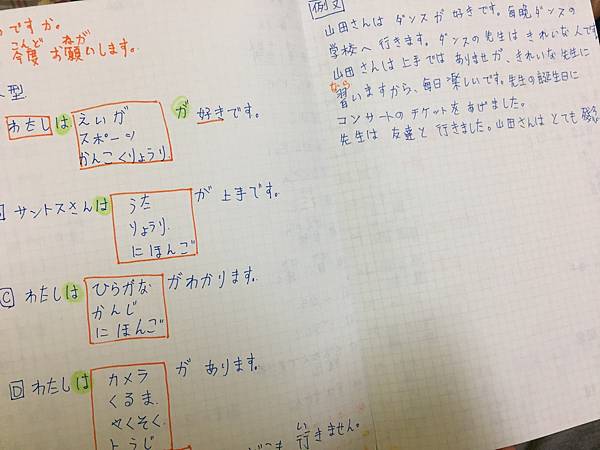 ですか。
こんど ねが
今度 お願いします。
型
わたしは えいが が 好きです。
スポーツ
かんこくりょうり
サントスさんは うた が 上手です。
りょうり
にほんご
C わたしは ひらがな がわかります。
かんじ
にほんご
D わたしは カメラ が あります。
くるま
やくそく
ようじ
い
行きません。
例文
山田さんは ダンスが 好きです。毎晩 ダンスの
学校へ 行きます。ダンスの先生は きれいな人です
山田さんは 上手では ありませが、きれいな先生に
なら
習いますから、毎日 楽しいです。先生の誕生日に
コンサートの チケットを あげました。
先生は 友達と 行きました。山田さんは とても 残念